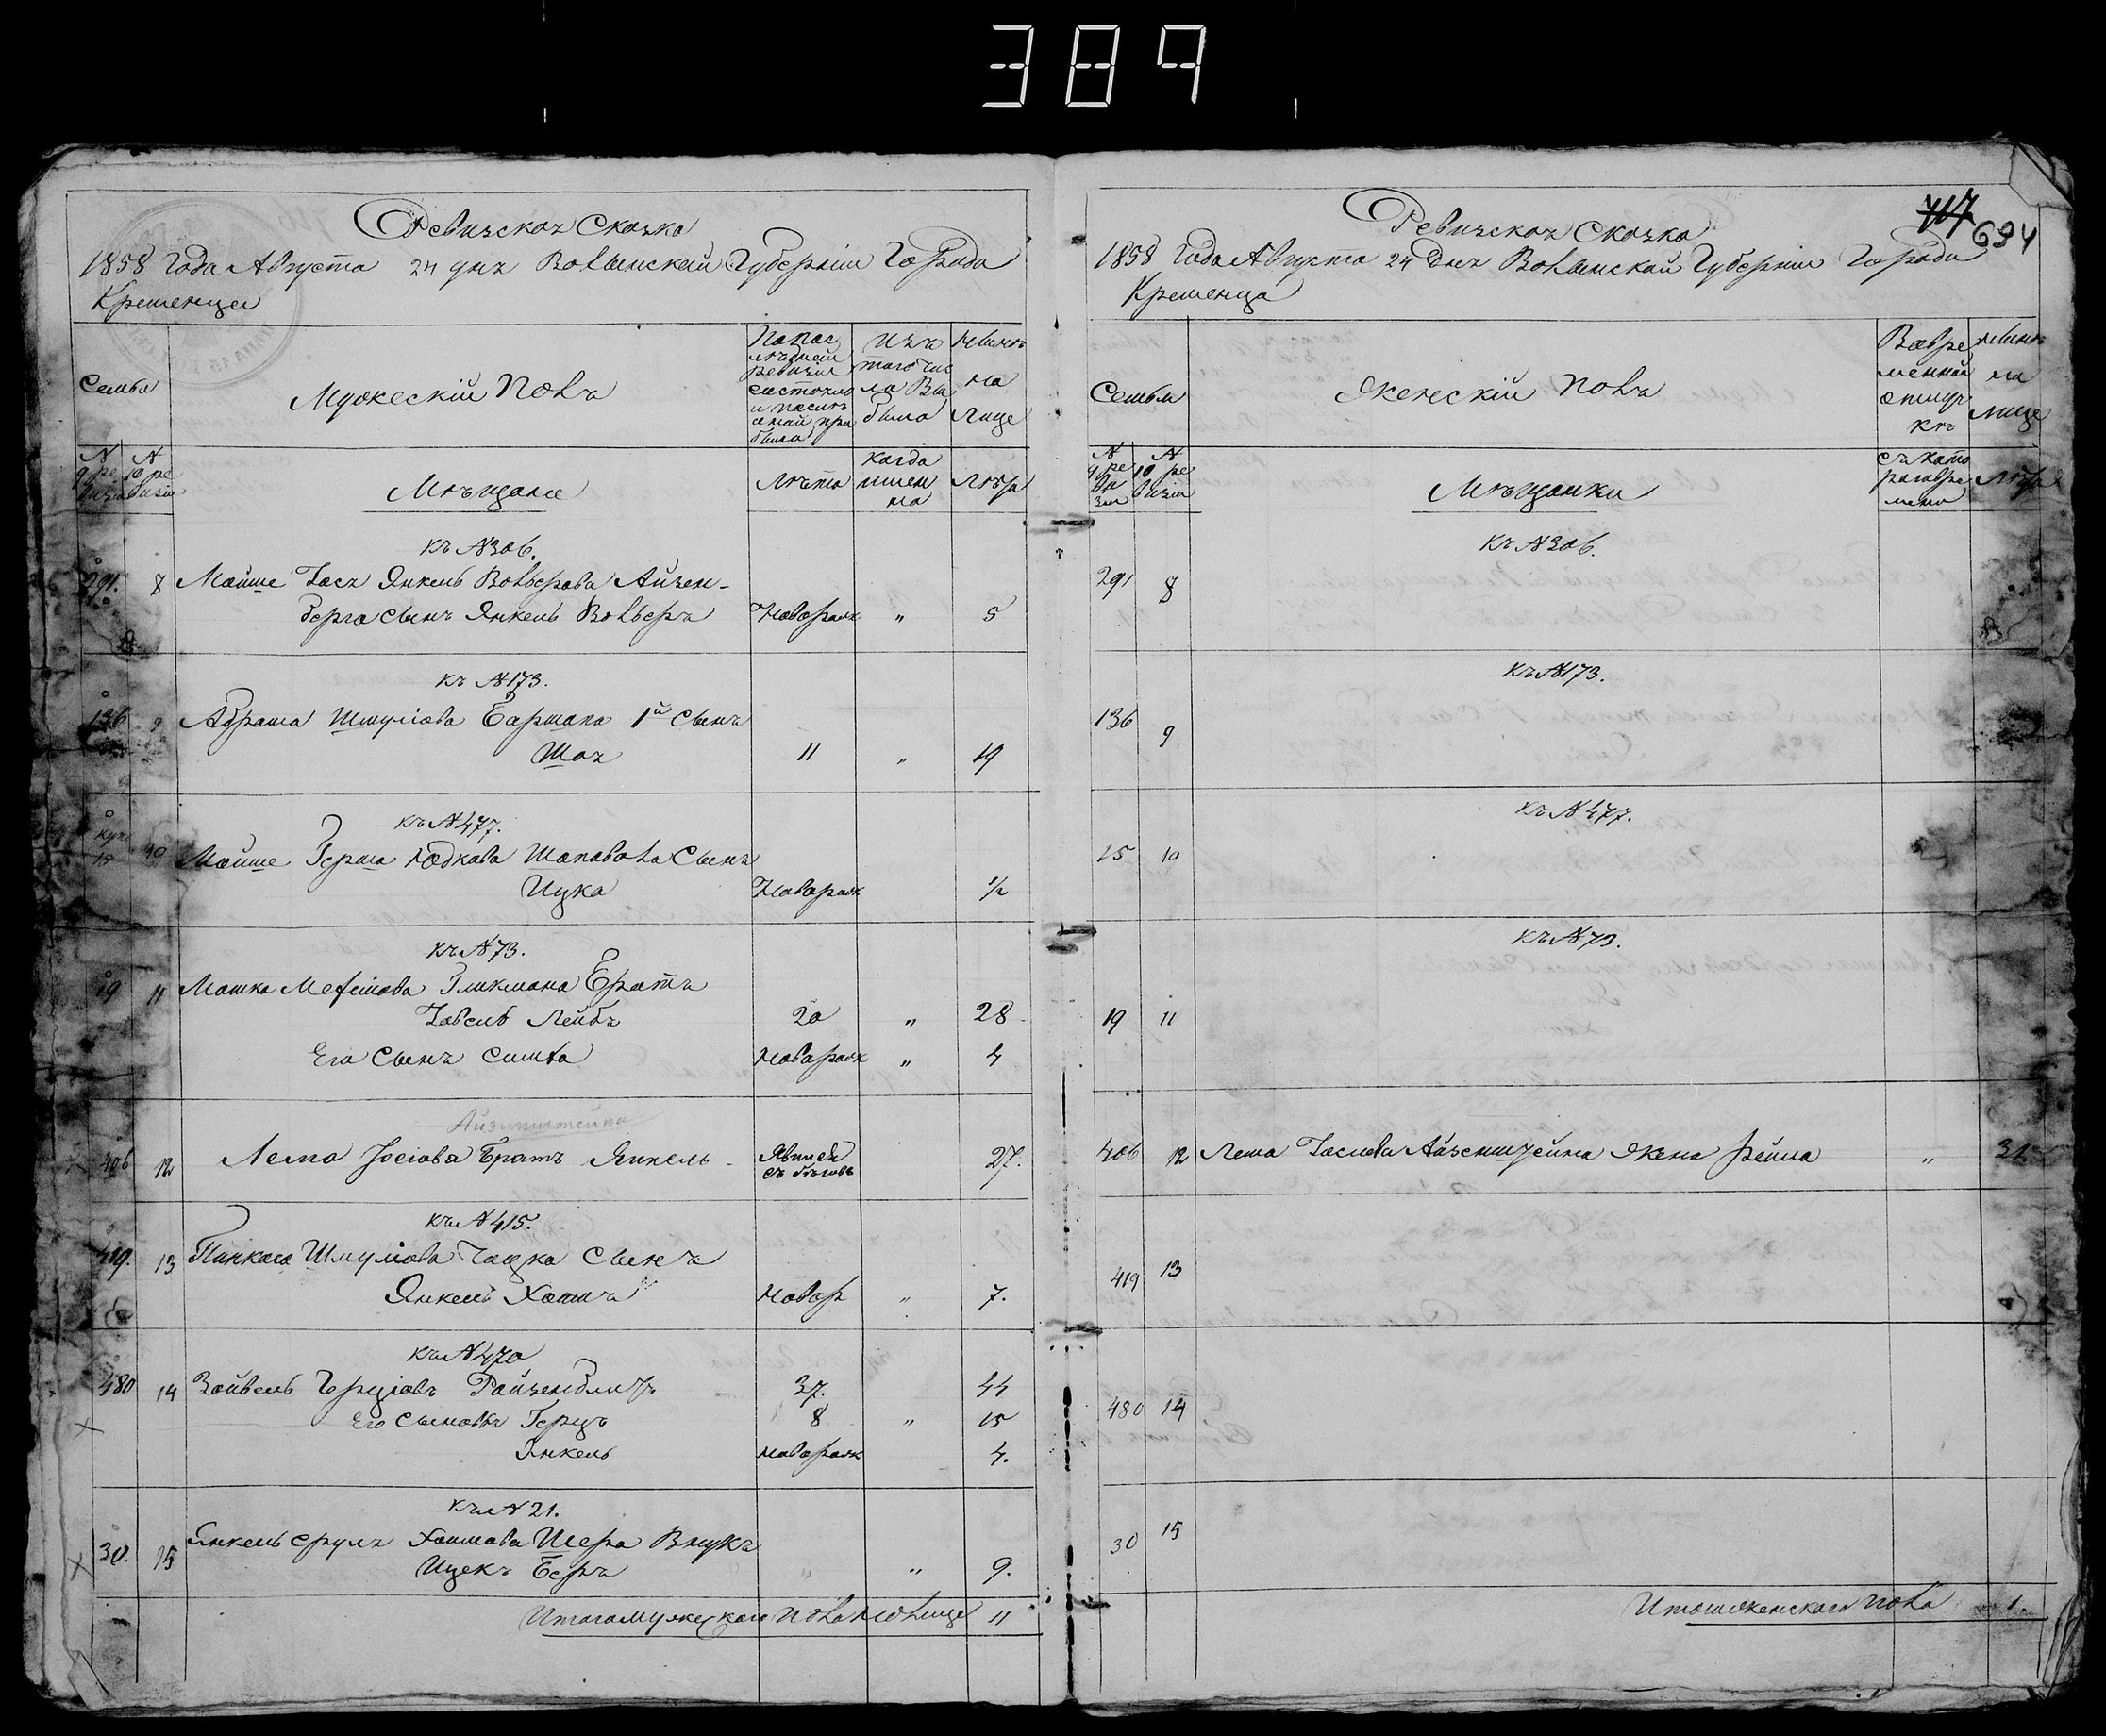 389
Ревизская Сказка
1858 Года Августа 24 дня Волынской Губерніи Города
Кременца
Семьи
Мужескій Полъ
По последней ревизіи состояло и после оной прибыло
Изъ того числа выбыло
Ныне на лице
№ 9 ревизіи
№ 10 ревизіи
Мѣщане
Лѣта
когда именно
Лѣта
къ №306.
291. 8 Мойше Іосъ Янкель Вольфова Айзен-
берга сынъ Янкель Вольфъ Новорож " 5
къ №173.
136 9 Абрама Шмуліова Гармана 1й сынъ
11 " 19
къ №477.
15 10 Мойше Герша Юдкова Шаповала Сынъ
Ицко Новорож 1/2
къ №73.
19 11 Мошка Гликмана Братъ
Лейбъ 20 " 28
Его Сынъ Симха Новорож " 4
Айзинштейна
406 12 Лейба Іосіова Братъ Янкель явился съ бѣговъ 27.
къ №415.
419. 13 Пинкаса Шмуліова Сынъ
Янкель Хаимъ Новор " 7.
къ №470
480 14 Зейвель Герціовъ 37. 44
Его сыновья Герцъ 8 " 15
Янкель новорож 4.
къ №21.
30. 15 Янкель Срулъ Хаимова Шера Внукъ
Ицекъ Беръ " " 9.
Итого мужескаго пола на лице 11
717
694
Ревизская Сказка
1858 Года Августа 24 Дня Волынской Губерніи Города
Кременца
Семьи
Женскій Полъ
Во временной отлучкѣ
Ныне на лице
№ 9 ревизіи
№ 10 ревизіи
Мѣщанки
съ котораго времени
Лѣта
къ №306.
291 8
къ №173.
136 9
къ №477.
15 10
къ №73.
19 11
406 12 Айзенштейна Жена Рейза " 31.
419 13
480 14
30 15
Итого женского пола 1.